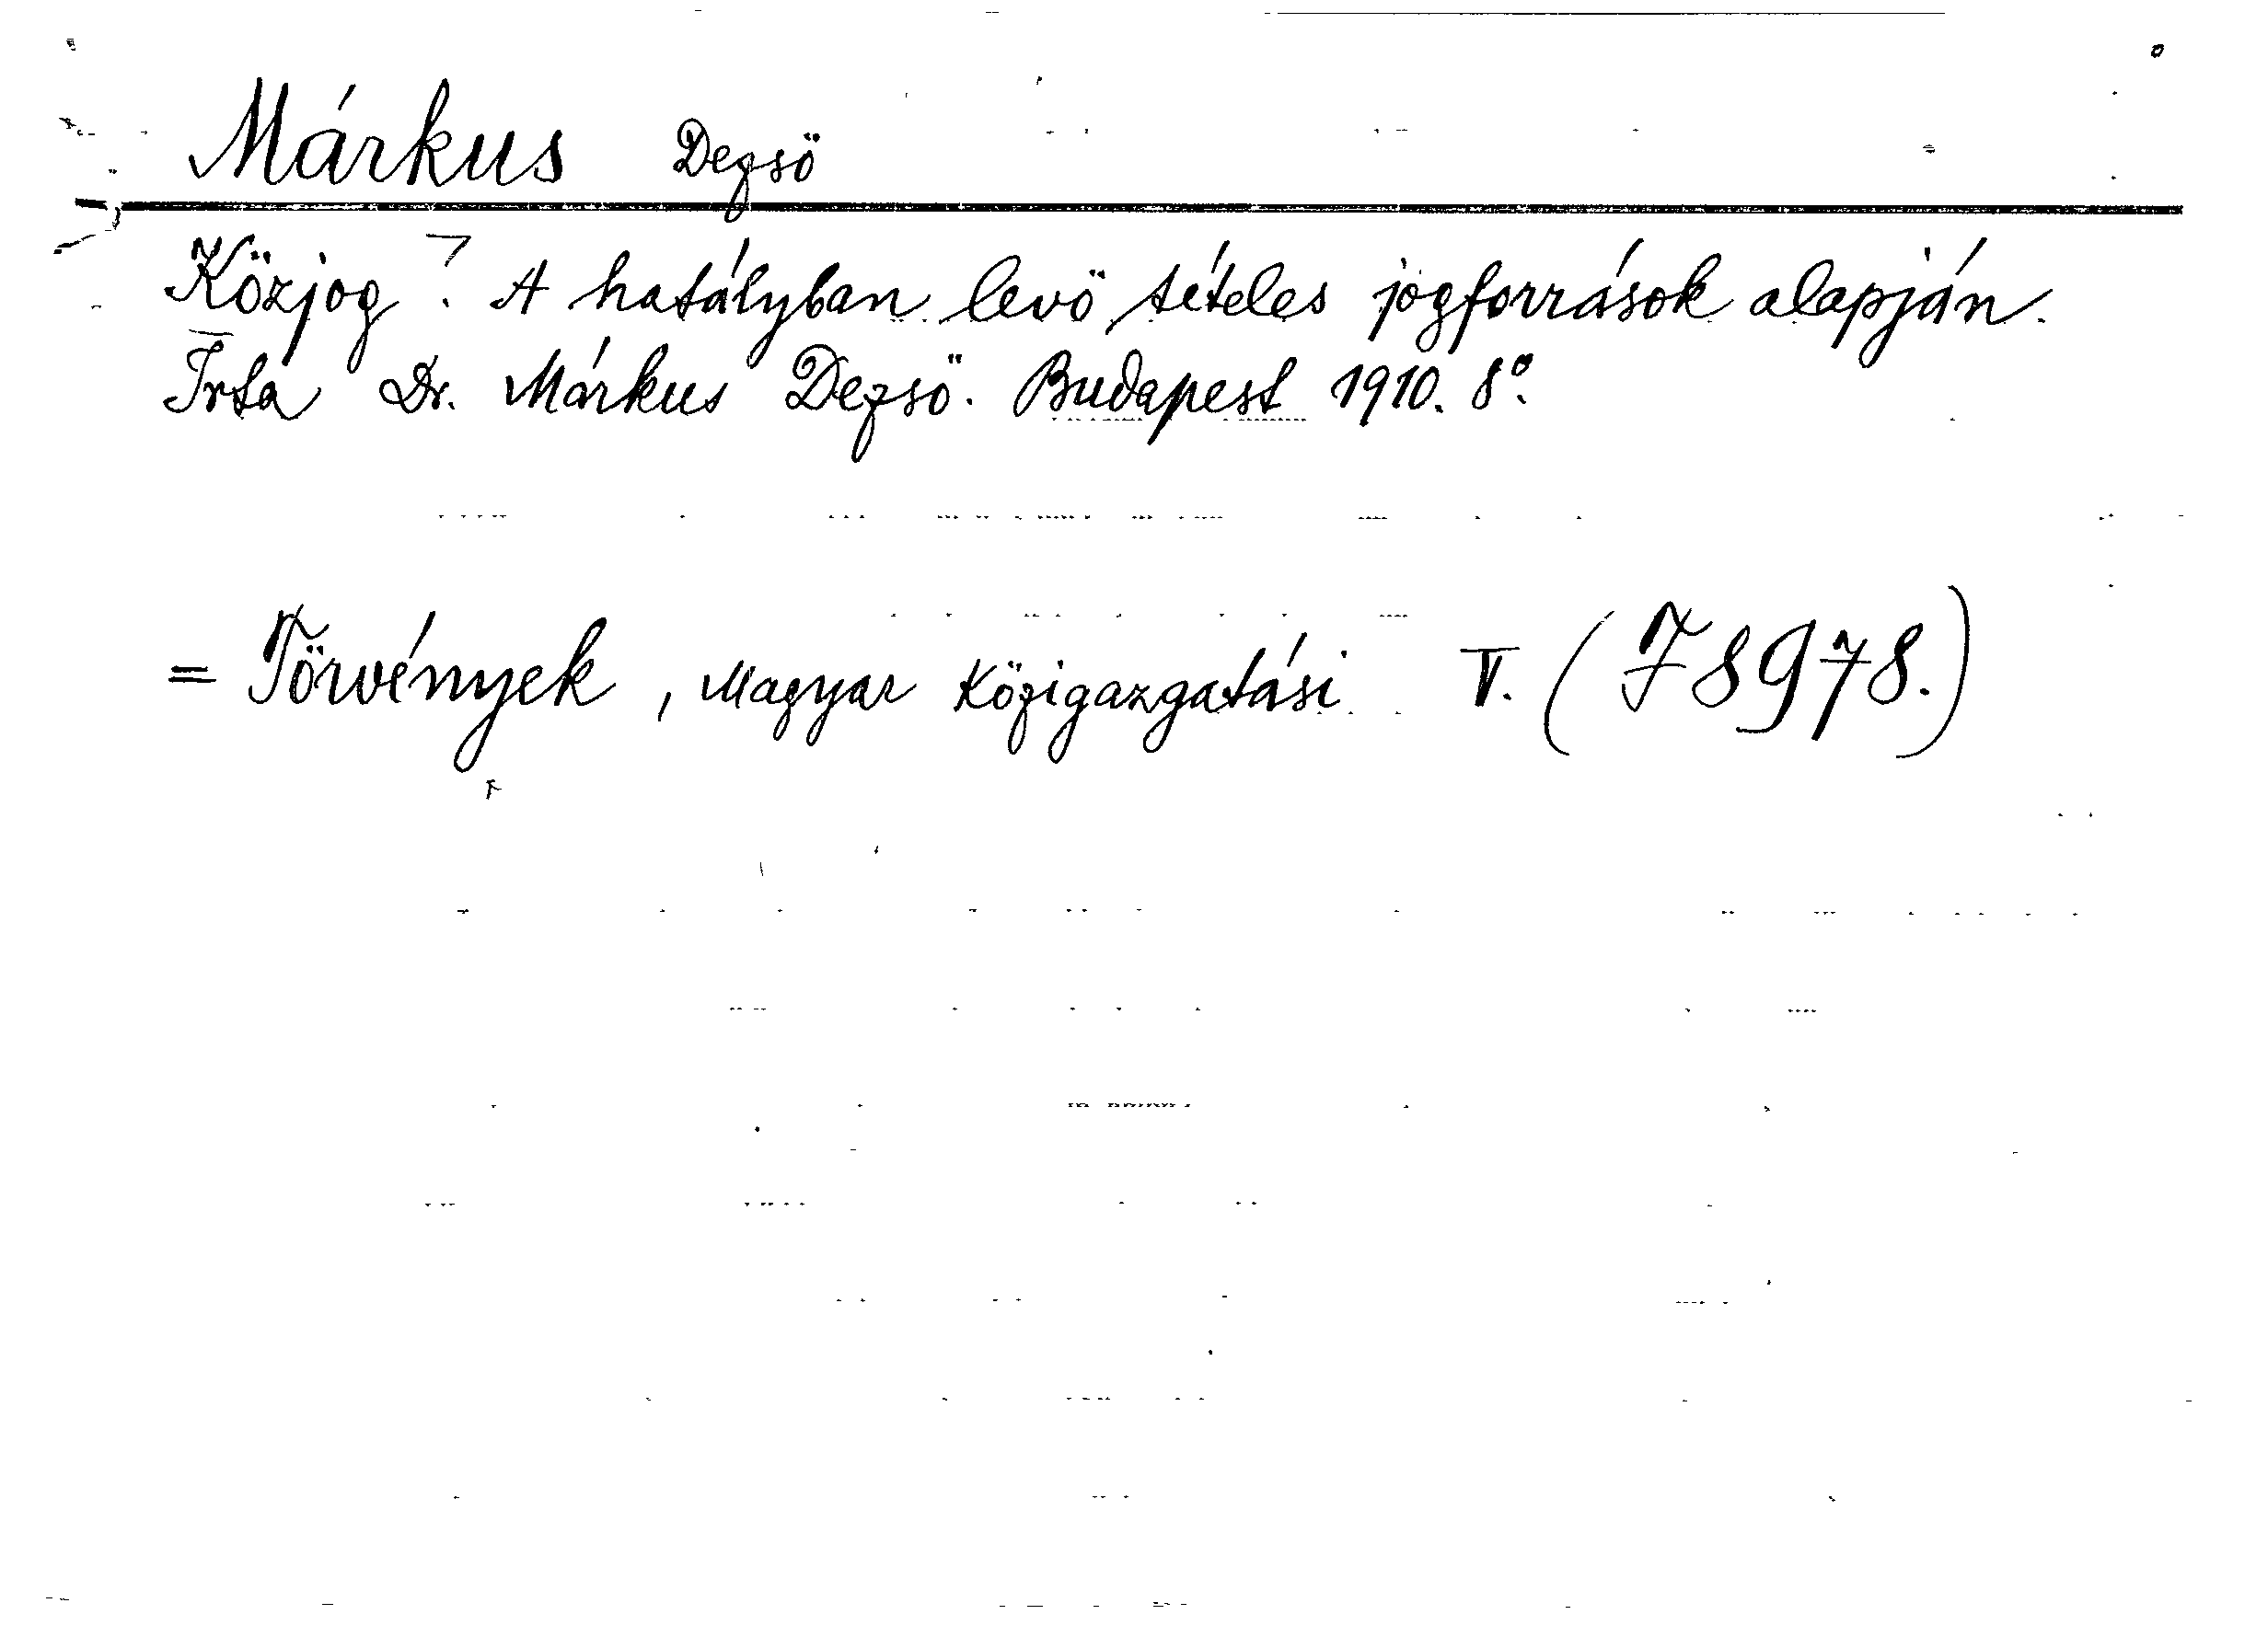 Márkus Dezső
Közjog. A hatályban levő tételes jogforrások alapján.
Irta Dr. Márkus Dezső. Budapest 1910. 8°.
= Törvények, Magyar Közigazgatási V. (78978.)